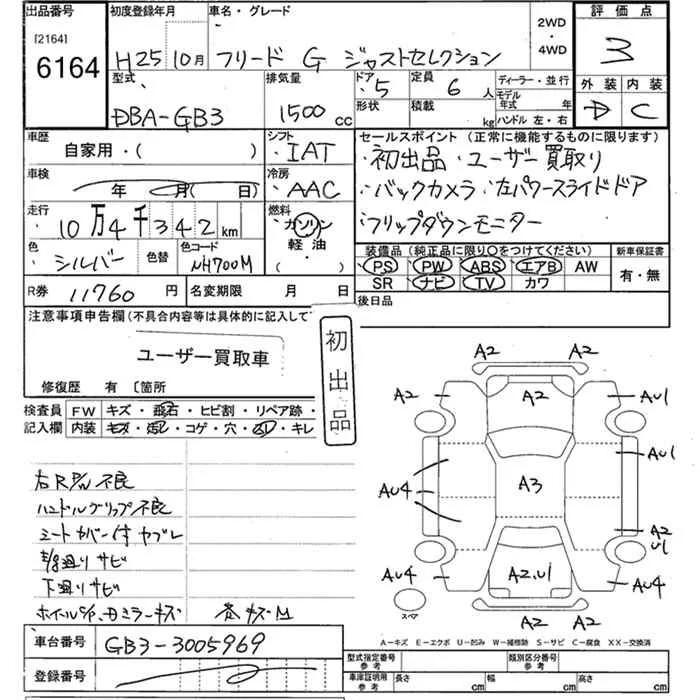 出品番号 初度登録年月 車名・グレード 2WD ・ 4WD 評価点
[2164]
6164 H25 10月 フリード G ジャストセレクション 3
型式 排気量 ドア 定員 ディーラー・並行 外装 内装
DBA-GB3 1500 cc 5 6人 モデル年式 年 D C
形状 積載 kg ハンドル 左・右
車歴 シフト セールスポイント (正常に機能するものに限ります)
自家用・( ) IAT ・初出品・ユーザー買取り
車検 年 月( 日) 冷房 AAC ・バックカメラ・左パワースライドドア
走行 10万4千342km 燃料 ガソリン ・フリップダウンモニター
軽油
( )
色 シルバー 色替 色コード NH700M
装備品 (純正品に限り○をつけてください) 新車保証書
PS PW ABS エアB AW 有・無
SR ナビ TV カワ
R券 11760 円 名変期限 月 日 後日品
注意事項申告欄(不具合内容等は具体的に記入して
ユーザー買取車
初出品
修復歴 有 〔箇所
検査員 FW キズ・飛石・ヒビ割・リペア跡・
記入欄 内装 キズ・汚レ・コゲ・穴・スレ・キレ
右R P/W 不良
ハンドルグリップ不良
シートカバー付 ヤブレ
下廻りサビ
A2
A2 A2 AU1
AU1
AU4 A3
A2
U1
AU4 A2,U1 AU4
スペア A2 A2
A-キズ E-エクボ U-凹み W-補修跡 S-サビ C-腐食 XX-交換済
車台番号 GB3-3005969
登録番号
型式指定番号 参考 類別区分番号 参考
車庫証明用 参考 長さ cm 幅 cm 高さ cm